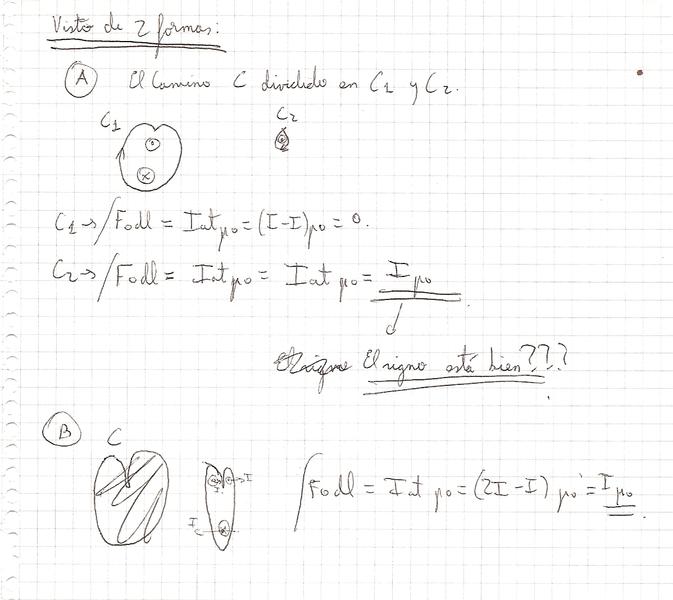 Visto de 2 formas:
A El Camino C dividido en C1 y C2.
C1 C2
C1→ ∫Fodl = Iat μo = (I-I)μo = 0.
C2→ ∫Fodl = Iat μo = Iat μo = I μo
El signo está bien???
B C
I I
I
∫Fodl = Iat μo = (2I-I) μo = I μo.